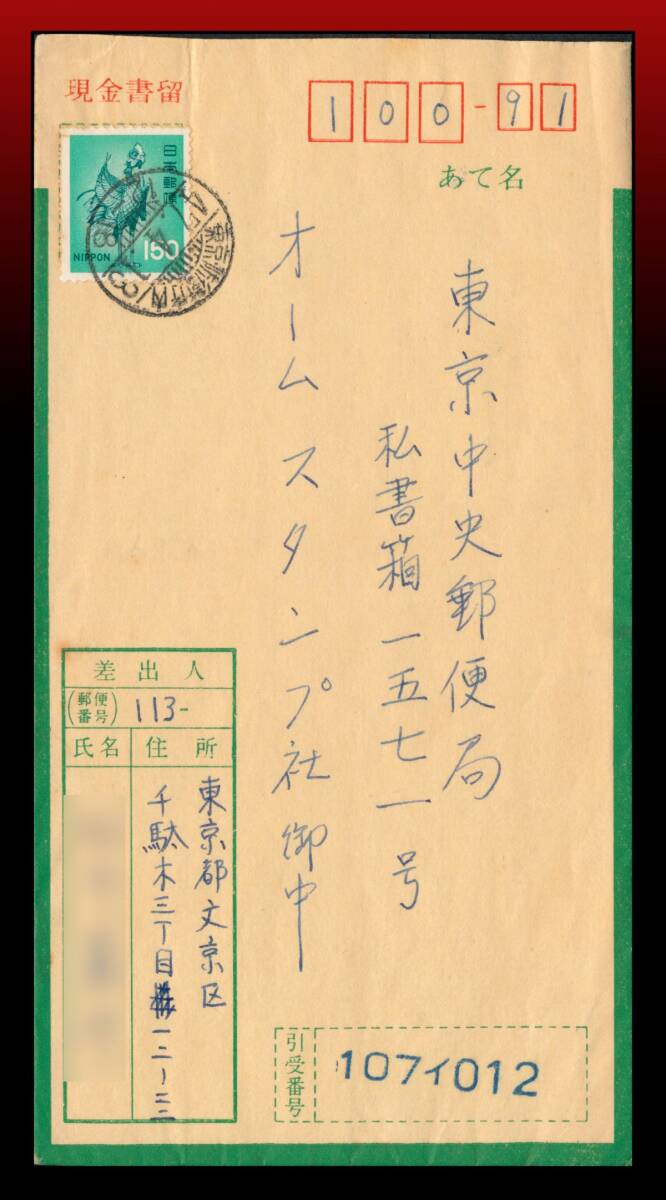 現金書留
100-91
あて名
東京中央郵便局
私書箱一五七一号
オームスタンプ社御中
日本郵便
NIPPON
150
差出人
(郵便番号)
113-
住所
東京都文京区
千駄木三丁目
一二ー二二
氏名
引受番号
107イ012